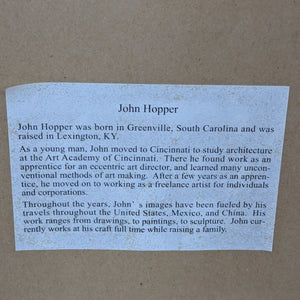 John Hopper
John Hopper was born in Greenville, South Carolina and was
raised in Lexington, KY.
As a young man, John moved to Cincinnati to study architecture
at the Art Academy of Cincinnati. There he found work as an
apprentice for an eccentric art director, and learned many uncon-
ventional methods of art making. After a few years as an appren-
tice, he moved on to working as a freelance artist for individuals
and corporations.
Throughout the years, John’s images have been fueled by his
travels throughout the United States, Mexico, and China. His
work ranges from drawings, to paintings, to sculpture. John cur-
rently works at his craft full time while raising a family.